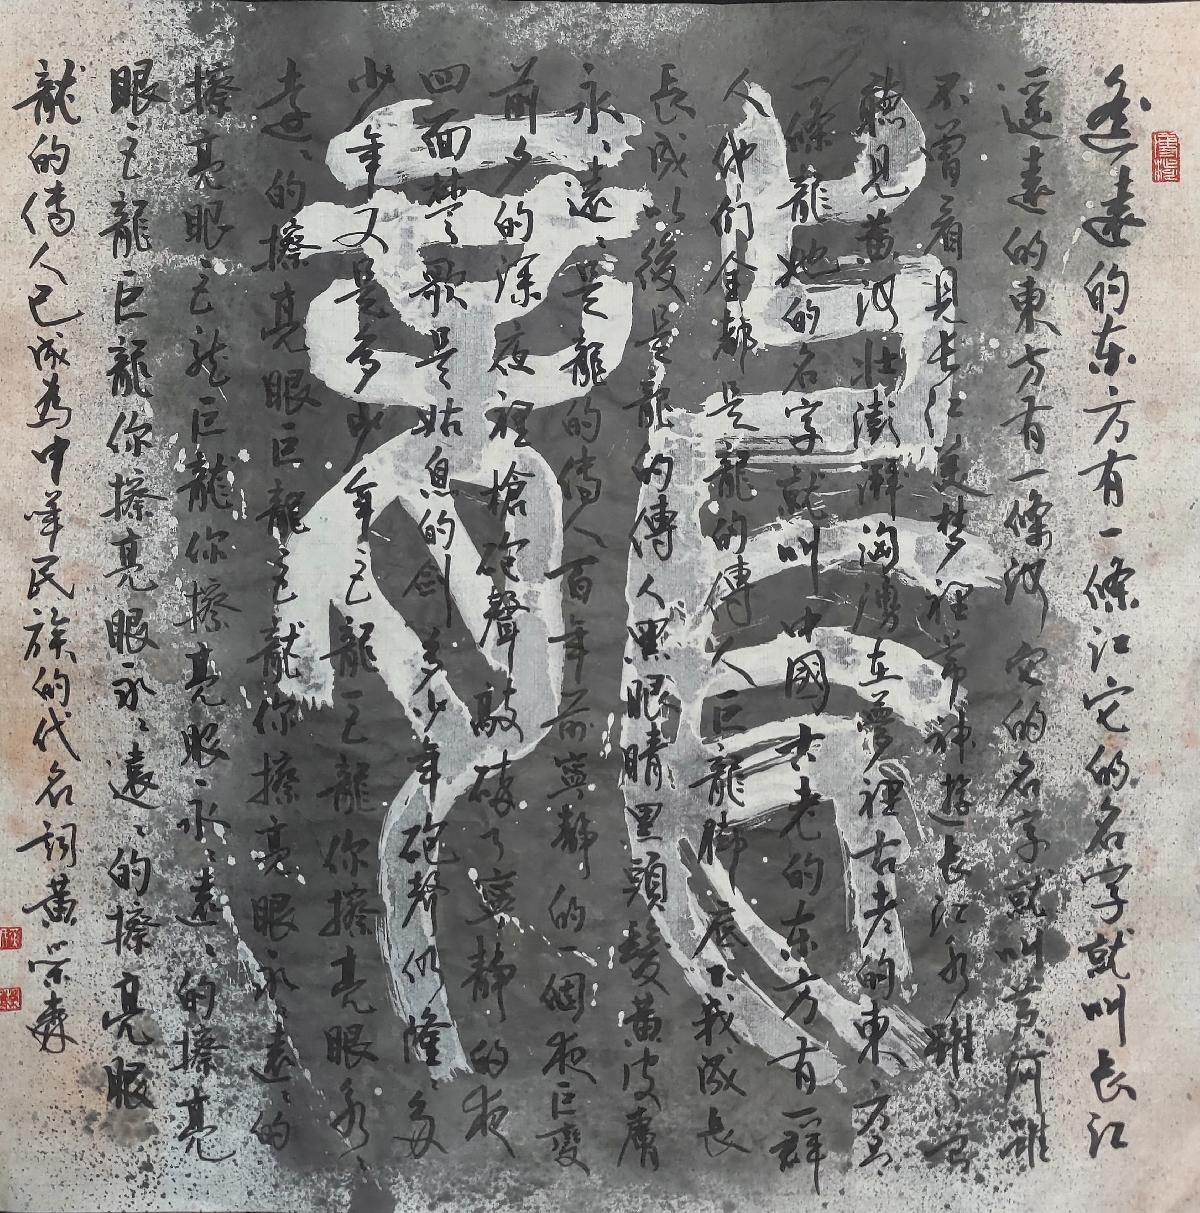 龍
遙遠的东方有一條江它的名字就叫长江
遥遠的東方有一條河它的名字就叫黄河雖
不曾看見长江美梦裡常神遊长江水雖不
聽見黄河壮澎湃洶湧在夢裡古老的東方有
一條龍她的名字就叫中國古老的东方有一群
人他们全都是龍的傳人巨龍脚底下我成長
長成以後是龍的傳人黑眼睛黑頭髮黄皮膚
永々遠々是龍的傳人百年前寧静的一個夜巨變
前夕的深夜裡槍砲聲敲碎了寧静的夜
四面楚歌是姑息的劍多少年砲聲仍隆々多
少年又是多少年巨龍巨龍你擦亮眼永々
遠々的擦亮眼巨龍巨龍你擦亮眼永々遠々的
擦亮眼巨龙巨龍你擦亮眼永々遠々的擦亮
眼巨龍巨龍你擦亮眼永々遠々的擦亮眼
龍的傳人已成為中華民族的代名詞黄荣森